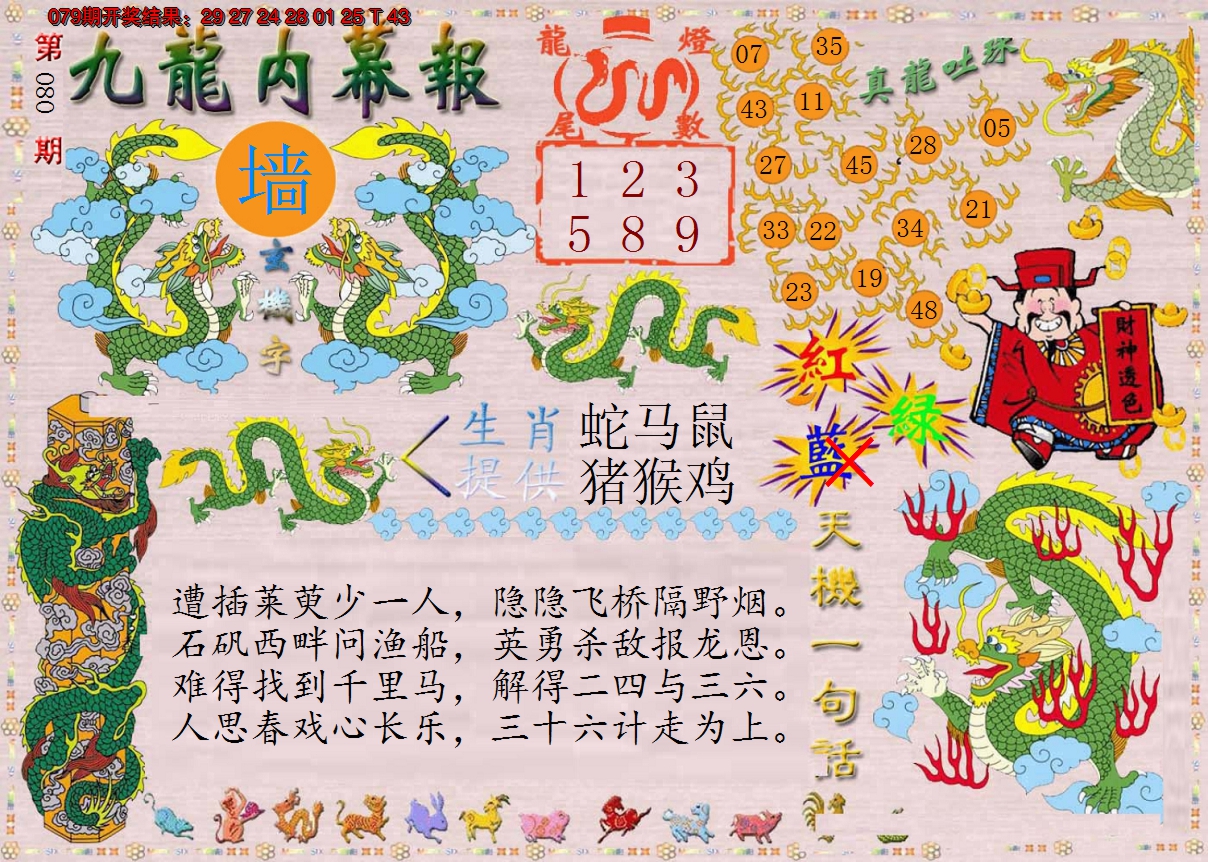 079期开奖结果：29 27 24 28 01 25 T 43
第080期
九龍内幕報
墙
玄機字
龍燈
尾數
1 2 3
5 8 9
真龍吐珠
07 35
43 11
27 45 28 05
33 22 34 21
23 19 48
紅
綠
藍
財神透色
生肖 蛇马鼠
提供 猪猴鸡
天機一句話
遭插莱萸少一人，隐隐飞桥隔野烟。
石矶西畔问渔船，英勇杀敌报龙恩。
难得找到千里马，解得二四与三六。
人思春戏心长乐，三十六计走为上。